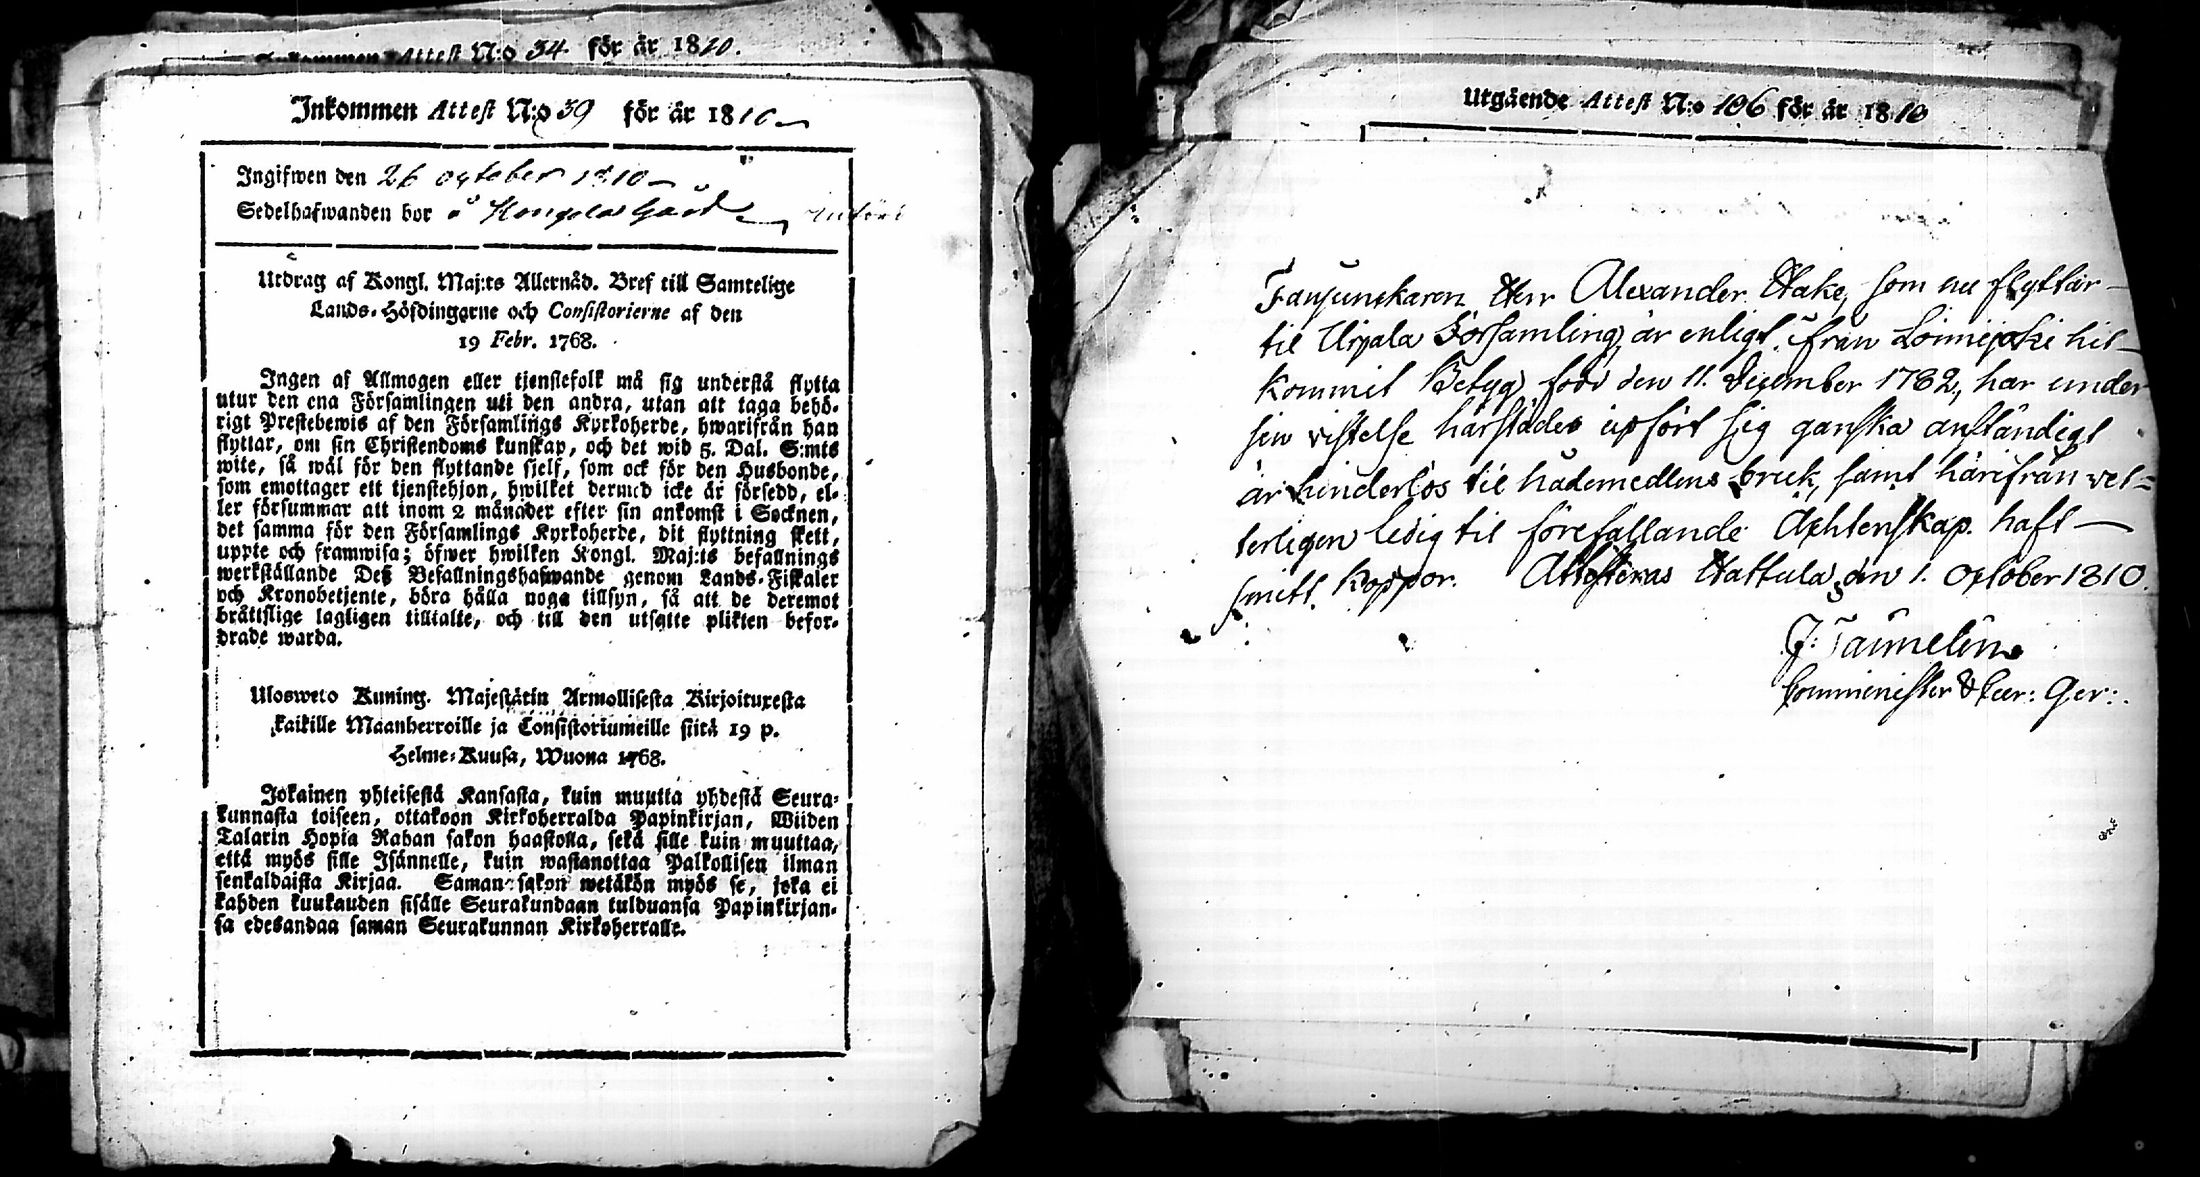 Inkommen Attest N:o 34 för är 1810.
Inkommen Attest N:o 39 för är 1810
Ingifwen den 26 october 1810
Sedelhafwanden bor å Gård
Utdrag af Kongl. Maj:ts Allernåd. Bref till Samtelige
Lands-Höfdingarne och Consistorierne af den
19 Febr. 1768.
Ingen af Allmogen eller tjenstefolk må sig understå flytta
utur den ena Församlingen uti den andra, utan att taga behö-
rigt Prestebewis af den Församlings Kyrkoherde, hwarifrån han
flyttar, om sin Christendoms kunskap, och det wid 5. Dal. S:mts
wite, så wäl för den flyttande sjelf, som ock för den Husbonde,
som emottager ett tjenstehjon, hwilket dermed icke är försedd, el-
ler försummar att inom 2 månader efter sin ankomst i Socknen,
det samma för den Församlings Kyrkoherde, dit flyttning skett,
uppte och framwisa; öfwer hwilken Kongl. Maj:ts befallnings
werkställande Deß Befallningshafwande genom Lands-Fiskaler
och Kronobetjente, böra hålla noga tillsyn, så att de deremot
bråttslige lagligen tilltalte, och till den utsatte plikten befor-
drade warda.
Ulosweto Kuning. Majestätin Armollisesta Kirjoituxesta
kaikille Maanherroille ja Consistoriumeille siitä 19 p.
Helme-Kuusa, Wuona 1768.
Jokainen yhteisestä Kansasta, kuin muutta yhdestä Seura-
kunnasta toiseen, ottakoon Kirkoherralda Papinkirjan, Wiiden
Talarin Hopia Rahan sakon haastolla, sekä sille kuin muuttaa,
että myös sille Isännelle, kuin wastanottaa Palkollisen ilman
senkaldaista Kirjaa. Saman sakon wetäkön myös se, joka ei
kahden kuukauden sisälle Seurakundaan tulduansa Papinkirjan-
sa edesandaa saman Seurakunnan Kirkoherralle.
Utgående Attest N:o 106 för är 1810
Fanjunkaren Herr Alexander Hake, som nu flyttar
til Urjala Församling, är enligt från Loimijoki hit
kommit Betyg född den 11. December 1782, har under
sin vistelse härstädes upfört sig ganska anständigt
är hinderlös til nådemedlens bruk, samt härifrån vet=
terligen ledig til förefallande Ächtenskap. haft
smitt. koppor. Attesteras Hattula den 1. October 1810.
J: Taimelin
Comminister &